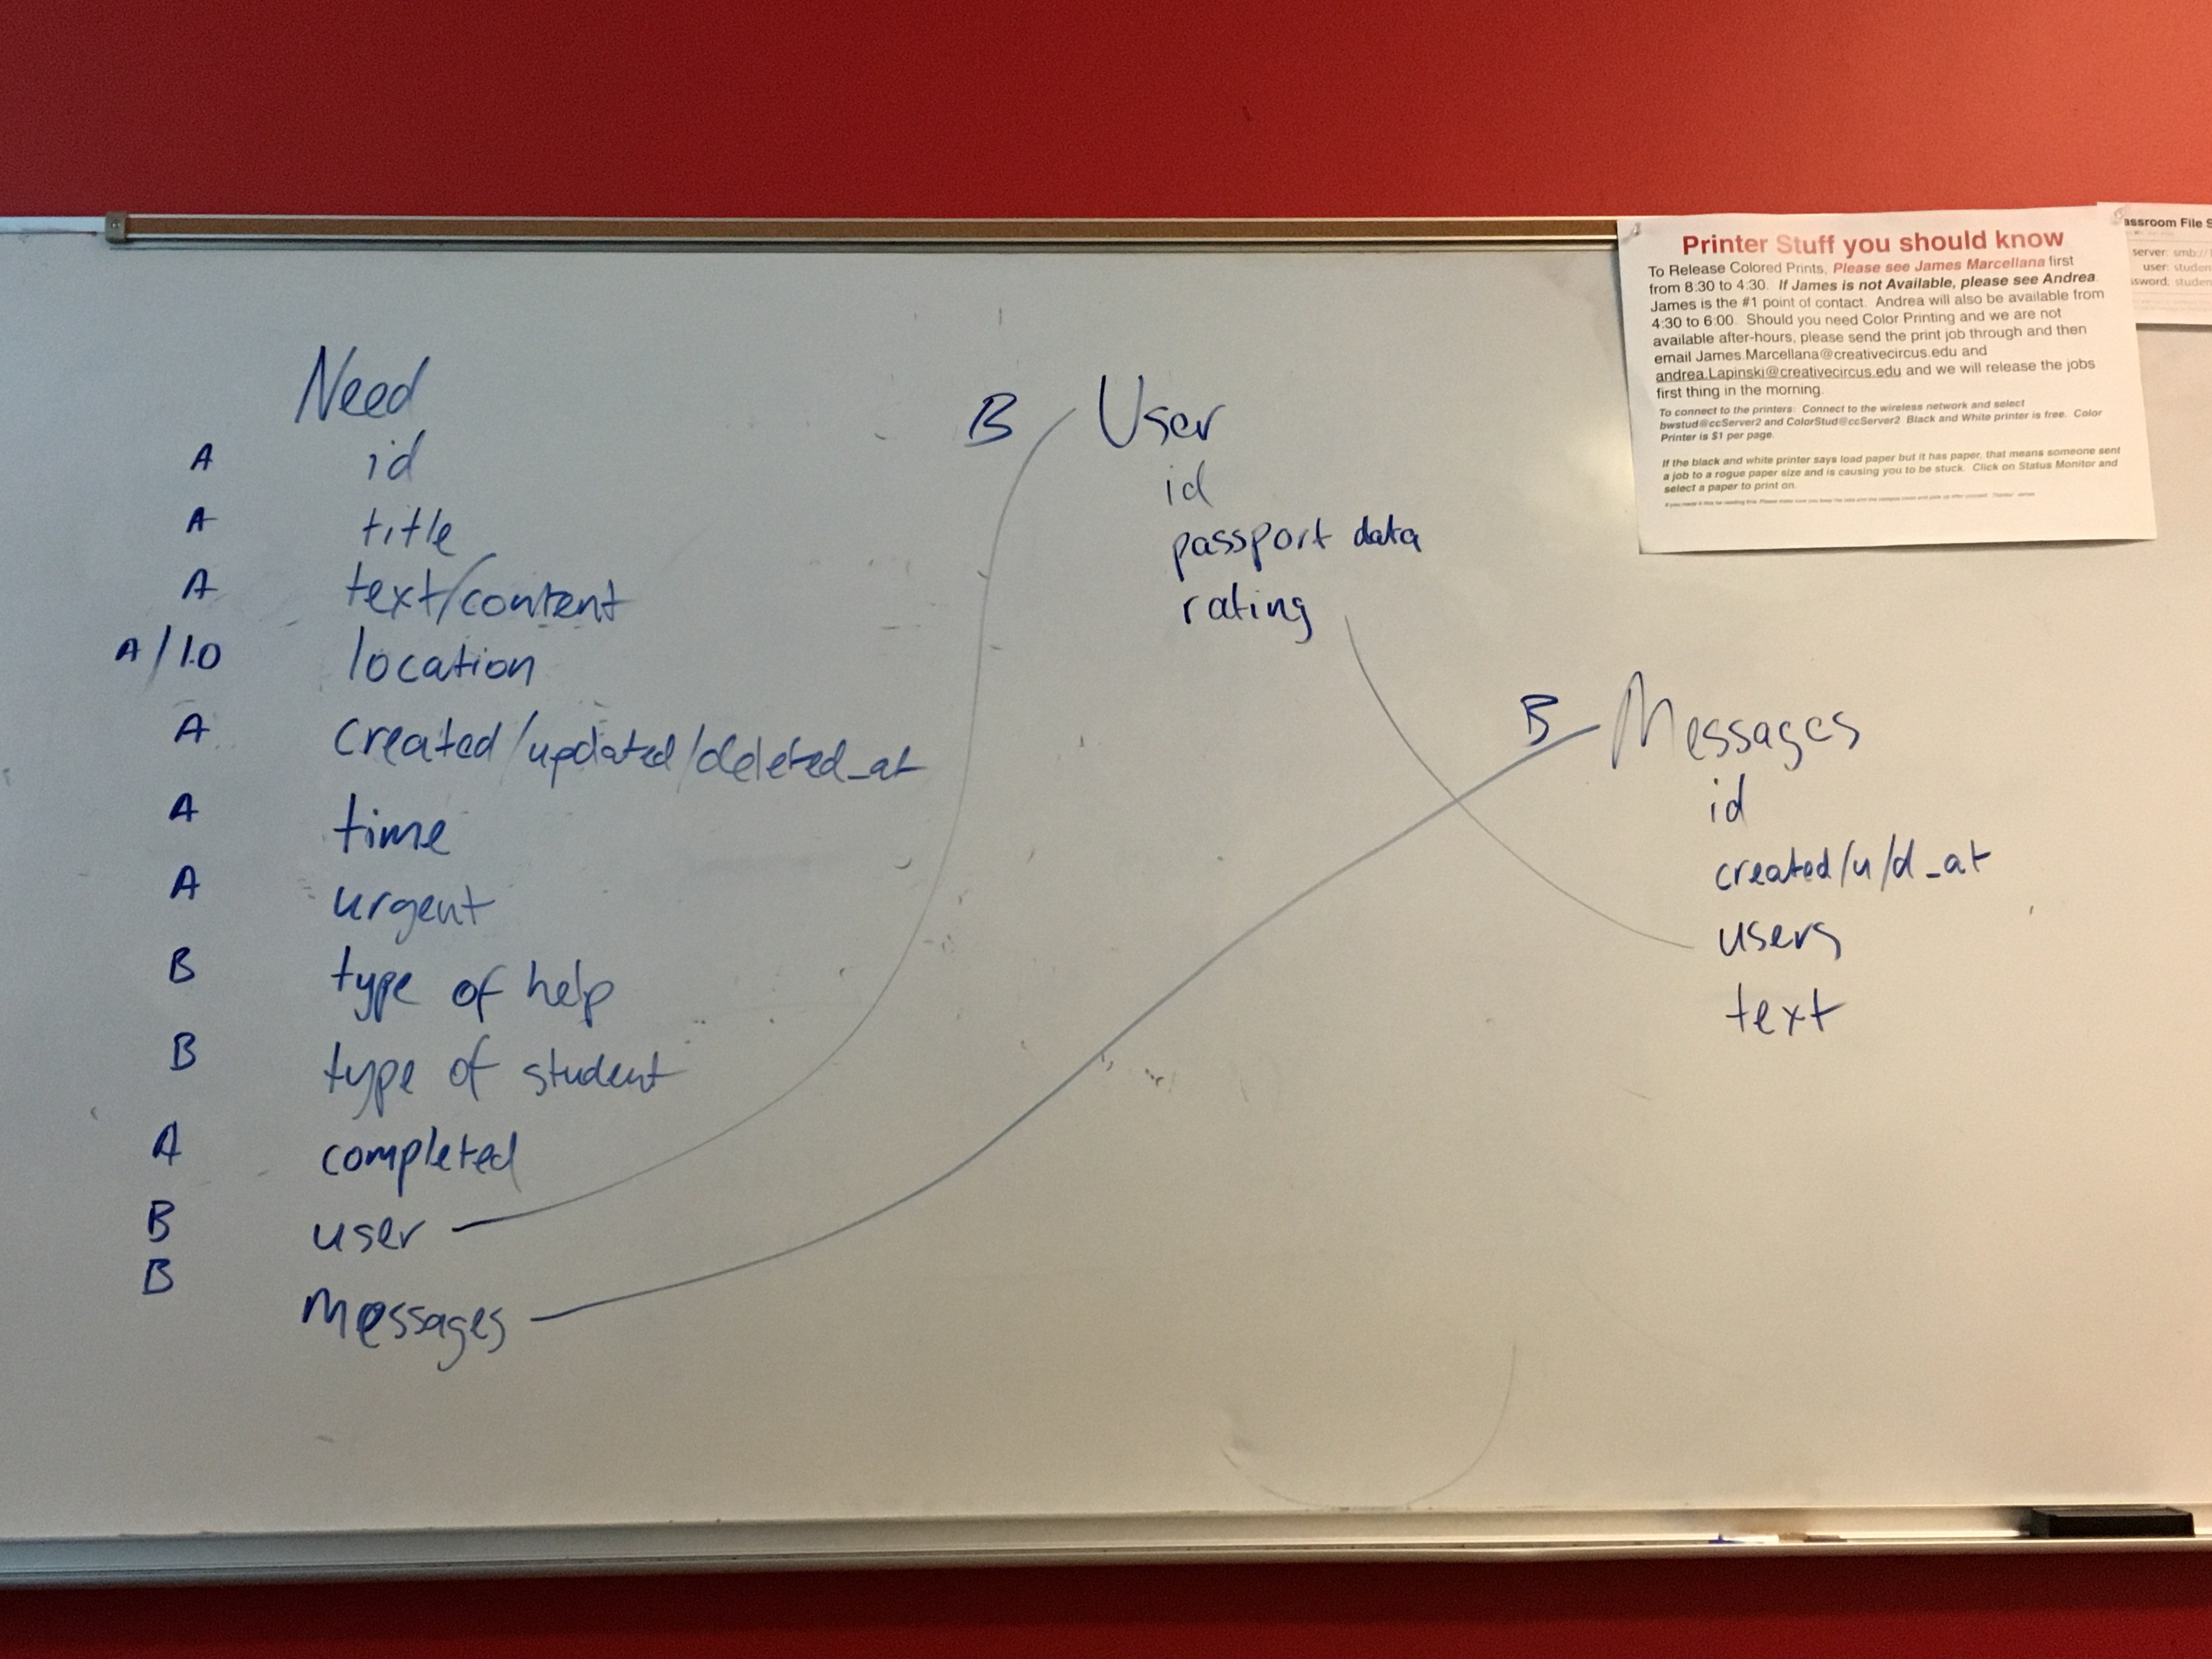 Need
A id
A title
A text/content
A/1.0 location
A created/updated/deleted_at
A time
A urgent
B type of help
B type of student
A completed
B user
B Messages
B User
id
passport data
rating
B Messages
id
created/u/d_at
users
text
Printer Stuff you should know
To Release Colored Prints, Please see James Marcellana first
from 8:30 to 4:30. If James is not Available, please see Andrea.
James is the #1 point of contact. Andrea will also be available from
4:30 to 6:00. Should you need Color Printing and we are not
available after-hours, please send the print job through and then
email James.Marcellana@creativecircus.edu and
andrea.Lapinski@creativecircus.edu and we will release the jobs
first thing in the morning.
To connect to the printers: Connect to the wireless network and select
bwstud@ccServer2 and ColorStud@ccServer2 Black and White printer is free. Color
Printer is $1 per page.
If the black and white printer says load paper but it has paper, that means someone sent
a job to a rogue paper size and is causing you to be stuck. Click on Status Monitor and
select a paper to print on.
assroom File S
server: smb://
user: studen
ssword: studen